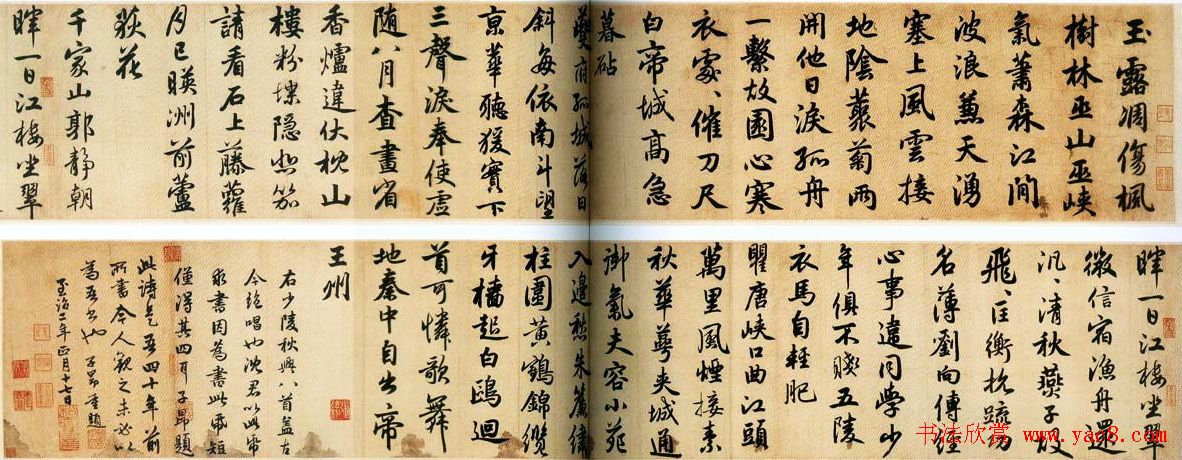 玉露凋傷楓
樹林巫山巫峽
氣蕭森江間
波浪蒹天湧
塞上風雲接
地陰藂菊兩
開他日淚孤舟
一繫故園心寒
衣處〻催刀尺
白帝城高急
暮砧
夔府孤城落日
斜每依南斗望
京華聽猨實下
三聲淚奉使虛
随八月查畫省
香爐違伏枕山
樓粉堞隐悲笳
請看石上藤蘿
月已暎洲前蘆
荻花
千家山郭靜朝
暉一日江樓坐翠
暉一日江樓坐翠
微信宿漁舟還
汎〻清秋燕子故
飛〻匡衡抗疏功
名薄劉向傳經
心事違同學少
年俱不賤五陵
衣馬自輕肥
瞿唐峽口曲江頭
萬里風煙接素
秋華萼夾城通
御氣夫容小苑
入邊愁朱簾繡
柱圍黃鶴錦纜
牙檣起白鷗迴
首可憐歌舞
地秦中自古帝
王州
右少陵秋興八首盖古
今絶唱也沈君以此帋
求書因爲書此帋短
僅得其四耳 子昂題
此詩是吾四十年前
所書今人觀之未必以
爲吾書也 子昂重題
至治二年正月十七日
书法欣赏 www.yac8.com